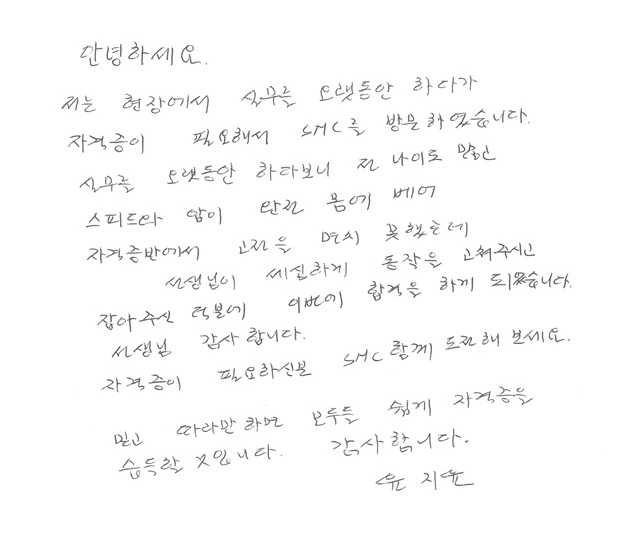 안녕하세요.
저는 현장에서 실무를 오랫동안 하다가
자격증이 필요해서 SMC를 방문하였습니다.
실무를 오랫동안 하다보니 전 나이도 많고
스피드와 암이 완전 몸에 베어
자격증반에서 고전을 면치 못했는데
선생님이 세심하게 동작을 고쳐주시고
잡아주신 덕분에 이번에 합격을 하게 되었습니다.
선생님 감사합니다.
자격증이 필요하신분 SMC 함께 도전해 보세요.
믿고 따라만하면 모두들 쉽게 자격증을
습득할 것입니다. 감사합니다.